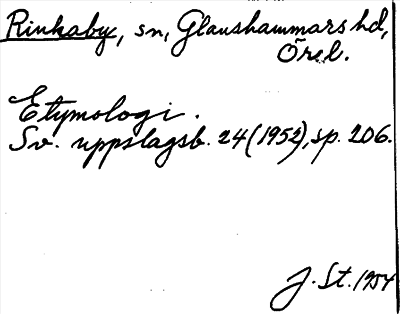 Rinkaby, sn, Glanshammars hd,
Örel.
Etymologi.
Sv. uppslagsb. 24 (1952), sp. 206.
J. St. 1954